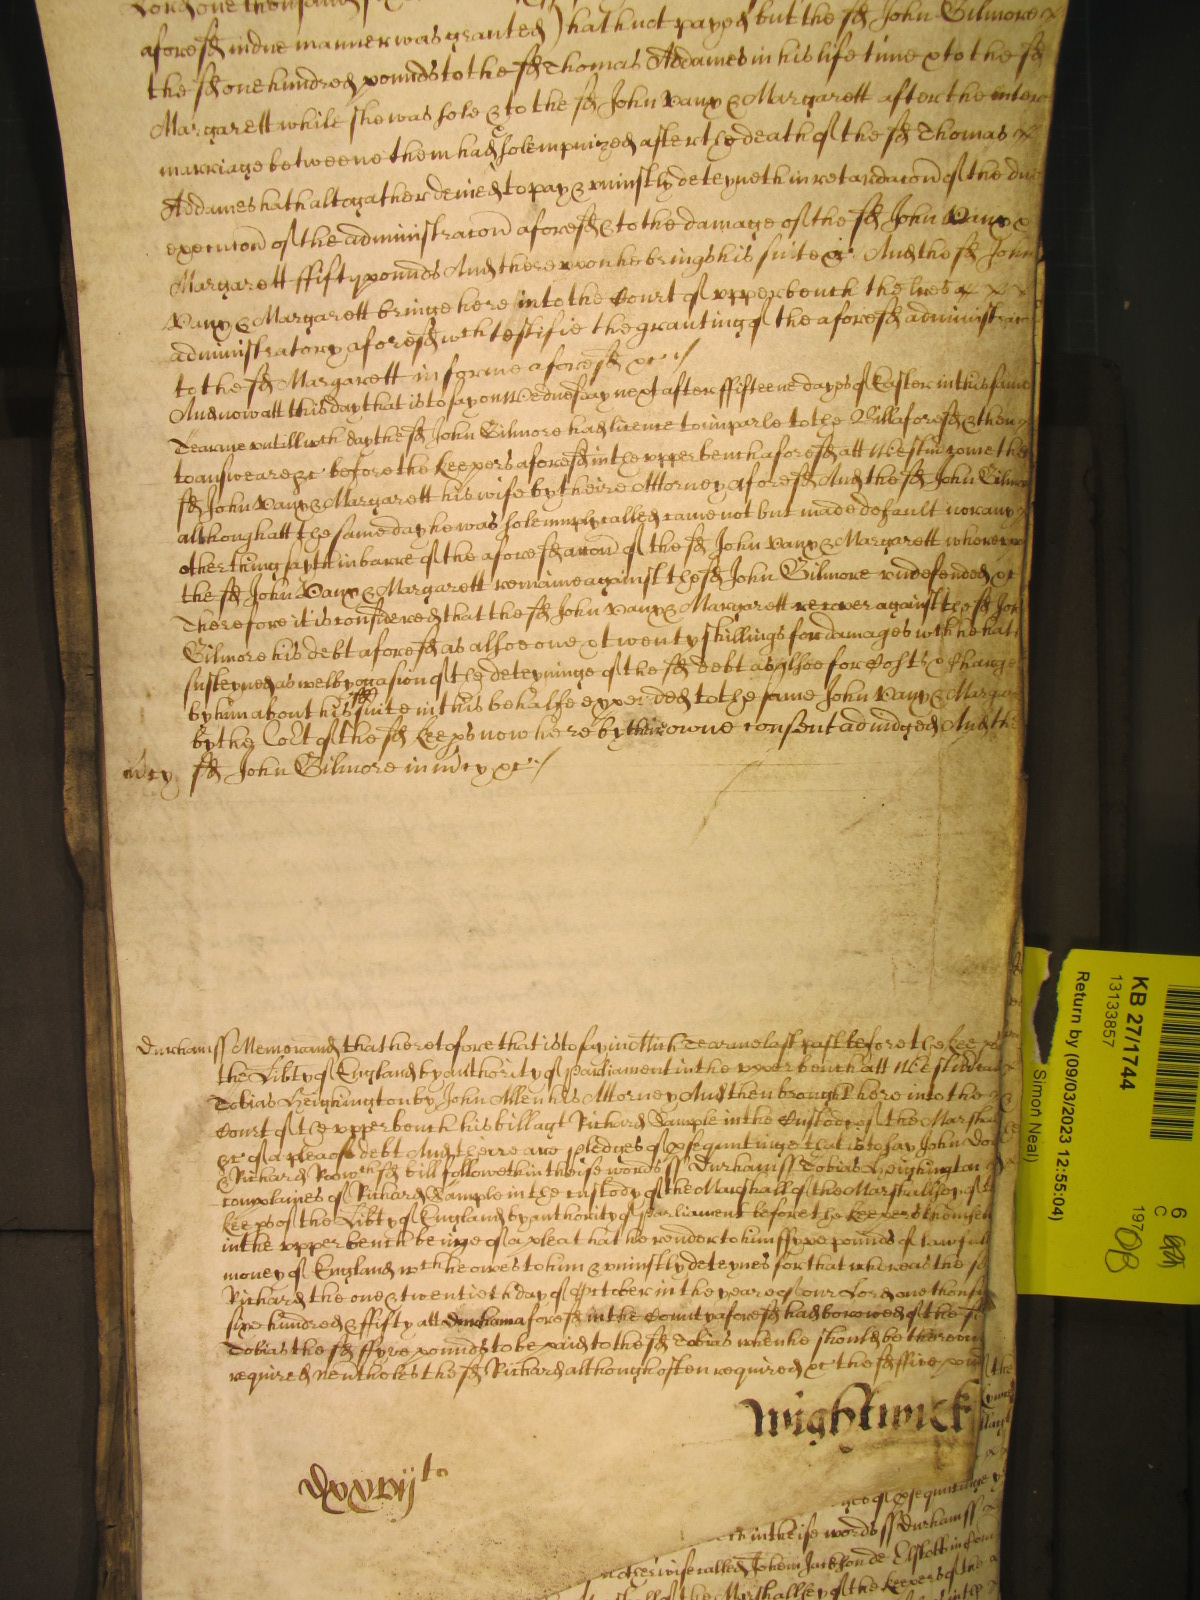 Lord one thousand
aforesd in due manner was granted) hath not payed but the sd John Gilmore
the sd one hundred pounds to the sd Thomas Addames in his life time & to the sd
Margarett while she was sole & to the sd John Vaux & Margarett after the
marriage betweene them had & solempnized after the death of the sd Thomas
Addames hath altogather denied to pay & uniustly deteyneth in retardacon of the due
execucon of the administracon aforesd & to the damage of the sd John Vaux &
Margarett ffifty pounds And thereupon he brings his suite &c And the sd John
Vaux & Margarett bringe here into the Court of upper bench the lres
administratory aforesd wch testifie the grantinge of the aforesd administracon
to the sd Margarett in forme aforesd &c
And now att this day that is to say on Wednesday next after ffifteene dayes of Easter in this same
Tearme untill wch day the sd John Gilmore had licence to imparle to the Bill aforesd & then
to answeare &c before the keepers aforesd in the upper bench aforesd att Westm come the
sd John Vaux & Margarett his wife by theire Attorney aforesd And the sd John Gilmore
although att the same day he was solempnly called came not but made default nor any
other thing sayth in barre of the aforesd accon of the sd John Vaux & Margarett whereupon
the sd John Vaux & Margarett remaine against the sd John Gilmore undefended &c
Therefore it is considered that the sd John Vaux & Margarett recover against the sd John
Gilmore his debt aforesd as alsoe one & twenty shillings for damages wch he hath
susteyned as well by occasion of the deteyninge of the sd debt as alsoe for Costs & Charges
by him about his suite in this behalfe expended to the same John Vaux & Margarett
by the Cort of the sd keeps now here by their owne consent adiudged And the
mcy sd John Gilmore in mcy &c
Durham ss Memorand that heretofore that is to say in Mich Tearme last past before the keeps
the Libty of England by authority of Parliament in the upper bench att Westm came
Tobias Heighington by John Allen his Attorney And then brought here into the
Court of the upper bench his bill agt Richard Sample in the Custody of the Marshall
&c of a plea of debt And there are pledges of psequutinge that is to say John Doe
& Richard Roe wch sd bill followeth in theise words ss Durham ss Tobias Heighington
complaines of Richard Sample in the custody of the Marshall of the Marshallsey of the
keeps of the Libty of England by authority of Parliament before the keepers themselves
in the upper bench beinge of a plea that he render to him ffyve pounds of lawfull
money of England wch he owes to him & uniustly deteynes for that whereas the sd
Richard the one & twentieth day of October in the yeare of our Lord one thousand
six hundred & ffifty att Durham aforesd in the County aforesd had borowed of the sd
Tobias the sd ffyve pounds to be paid to the sd Tobias when he should be thereunto
required Neverthelesse the sd Richard although often required &c the sd ffive pounds
Wightwick
Dxxvij to
of psequutinge
in theise words ss Durham ss
otherwise called John Jackson de
the Marshallsey of the keepers of the
KB 27/1744
13133857
Return by (09/03/2023 12:55:04)
Simon Neal)
6
C
197